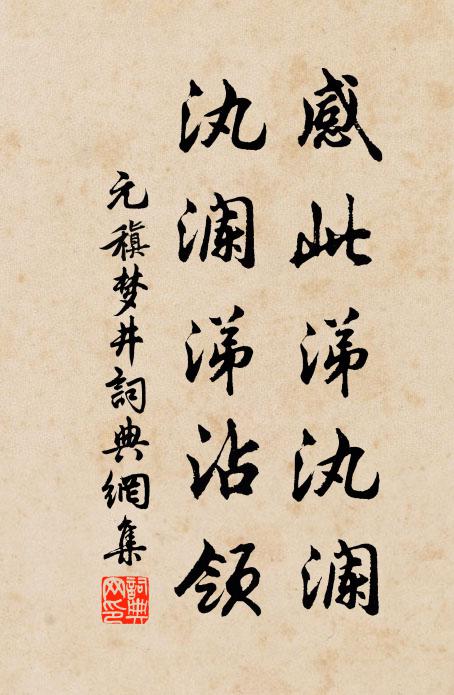 感此涕汍澜
汍澜涕沾领
元稹梦井詞典網集
詞典网印